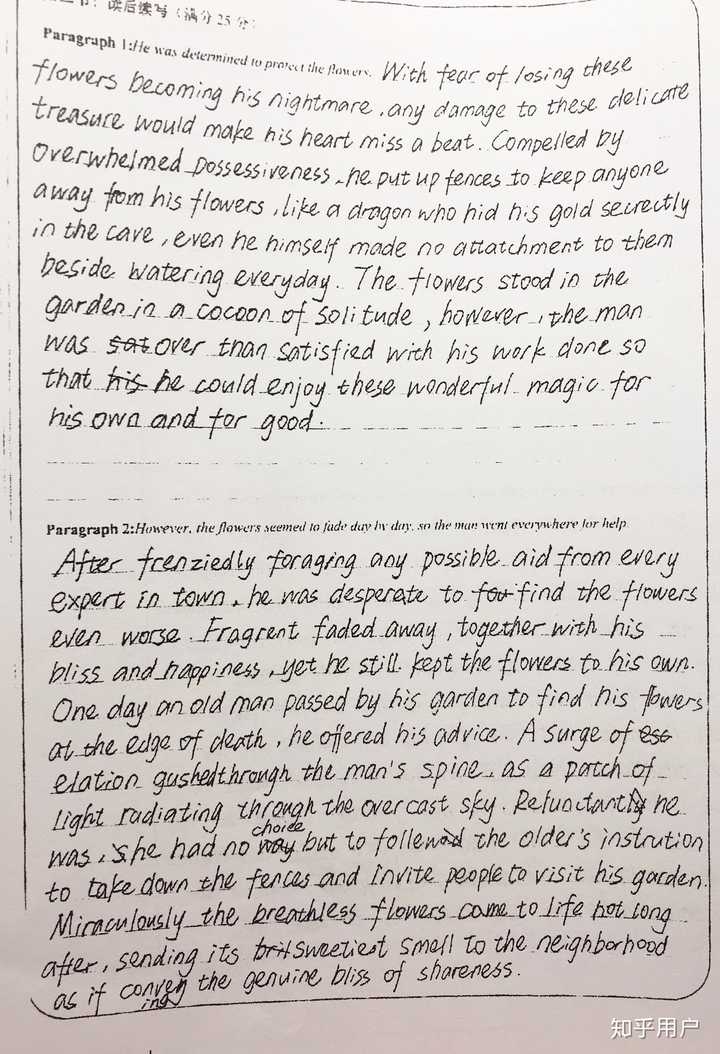 读后续写（满分25分）
Paragraph 1:He was determined to protect the flowers. With fear of losing these
flowers becoming his nightmare, any damage to these delicate
treasure would make his heart miss a beat. Compelled by
overwhelmed possessiveness, he put up fences to keep anyone
away from his flowers, like a dragon who hid his gold secrectly
in the cave, even he himself made no attatchment to them
beside watering everyday. The flowers stood in the
garden in a cocoon of solitude, however, the man
was sat over than satisfied with his work done so
that his he could enjoy these wonderful magic for
his own and for good.
Paragraph 2:However, the flowers seemed to fade day by day, so the man went everywhere for help.
After frenziedly foraging any possible aid from every
expert in town, he was desperate to fou find the flowers
even worse. Fragrent faded away, together with his
bliss and happiness, yet he still kept the flowers to his own.
One day an old man passed by his garden to find his flowers
at the edge of death, he offered his advice. A surge of esc
elation gushed through the man's spine, as a patch of
light radiating through the overcast sky. Refunctantly he
choice
was, he had no way but to follow the older's instrution
to take down the fences and invite people to visit his garden.
Miraculously the breathless flowers came to life not long
after, sending its sweetiest smell to the neighborhood
as if conveying the genuine bliss of shareness.
知乎用户